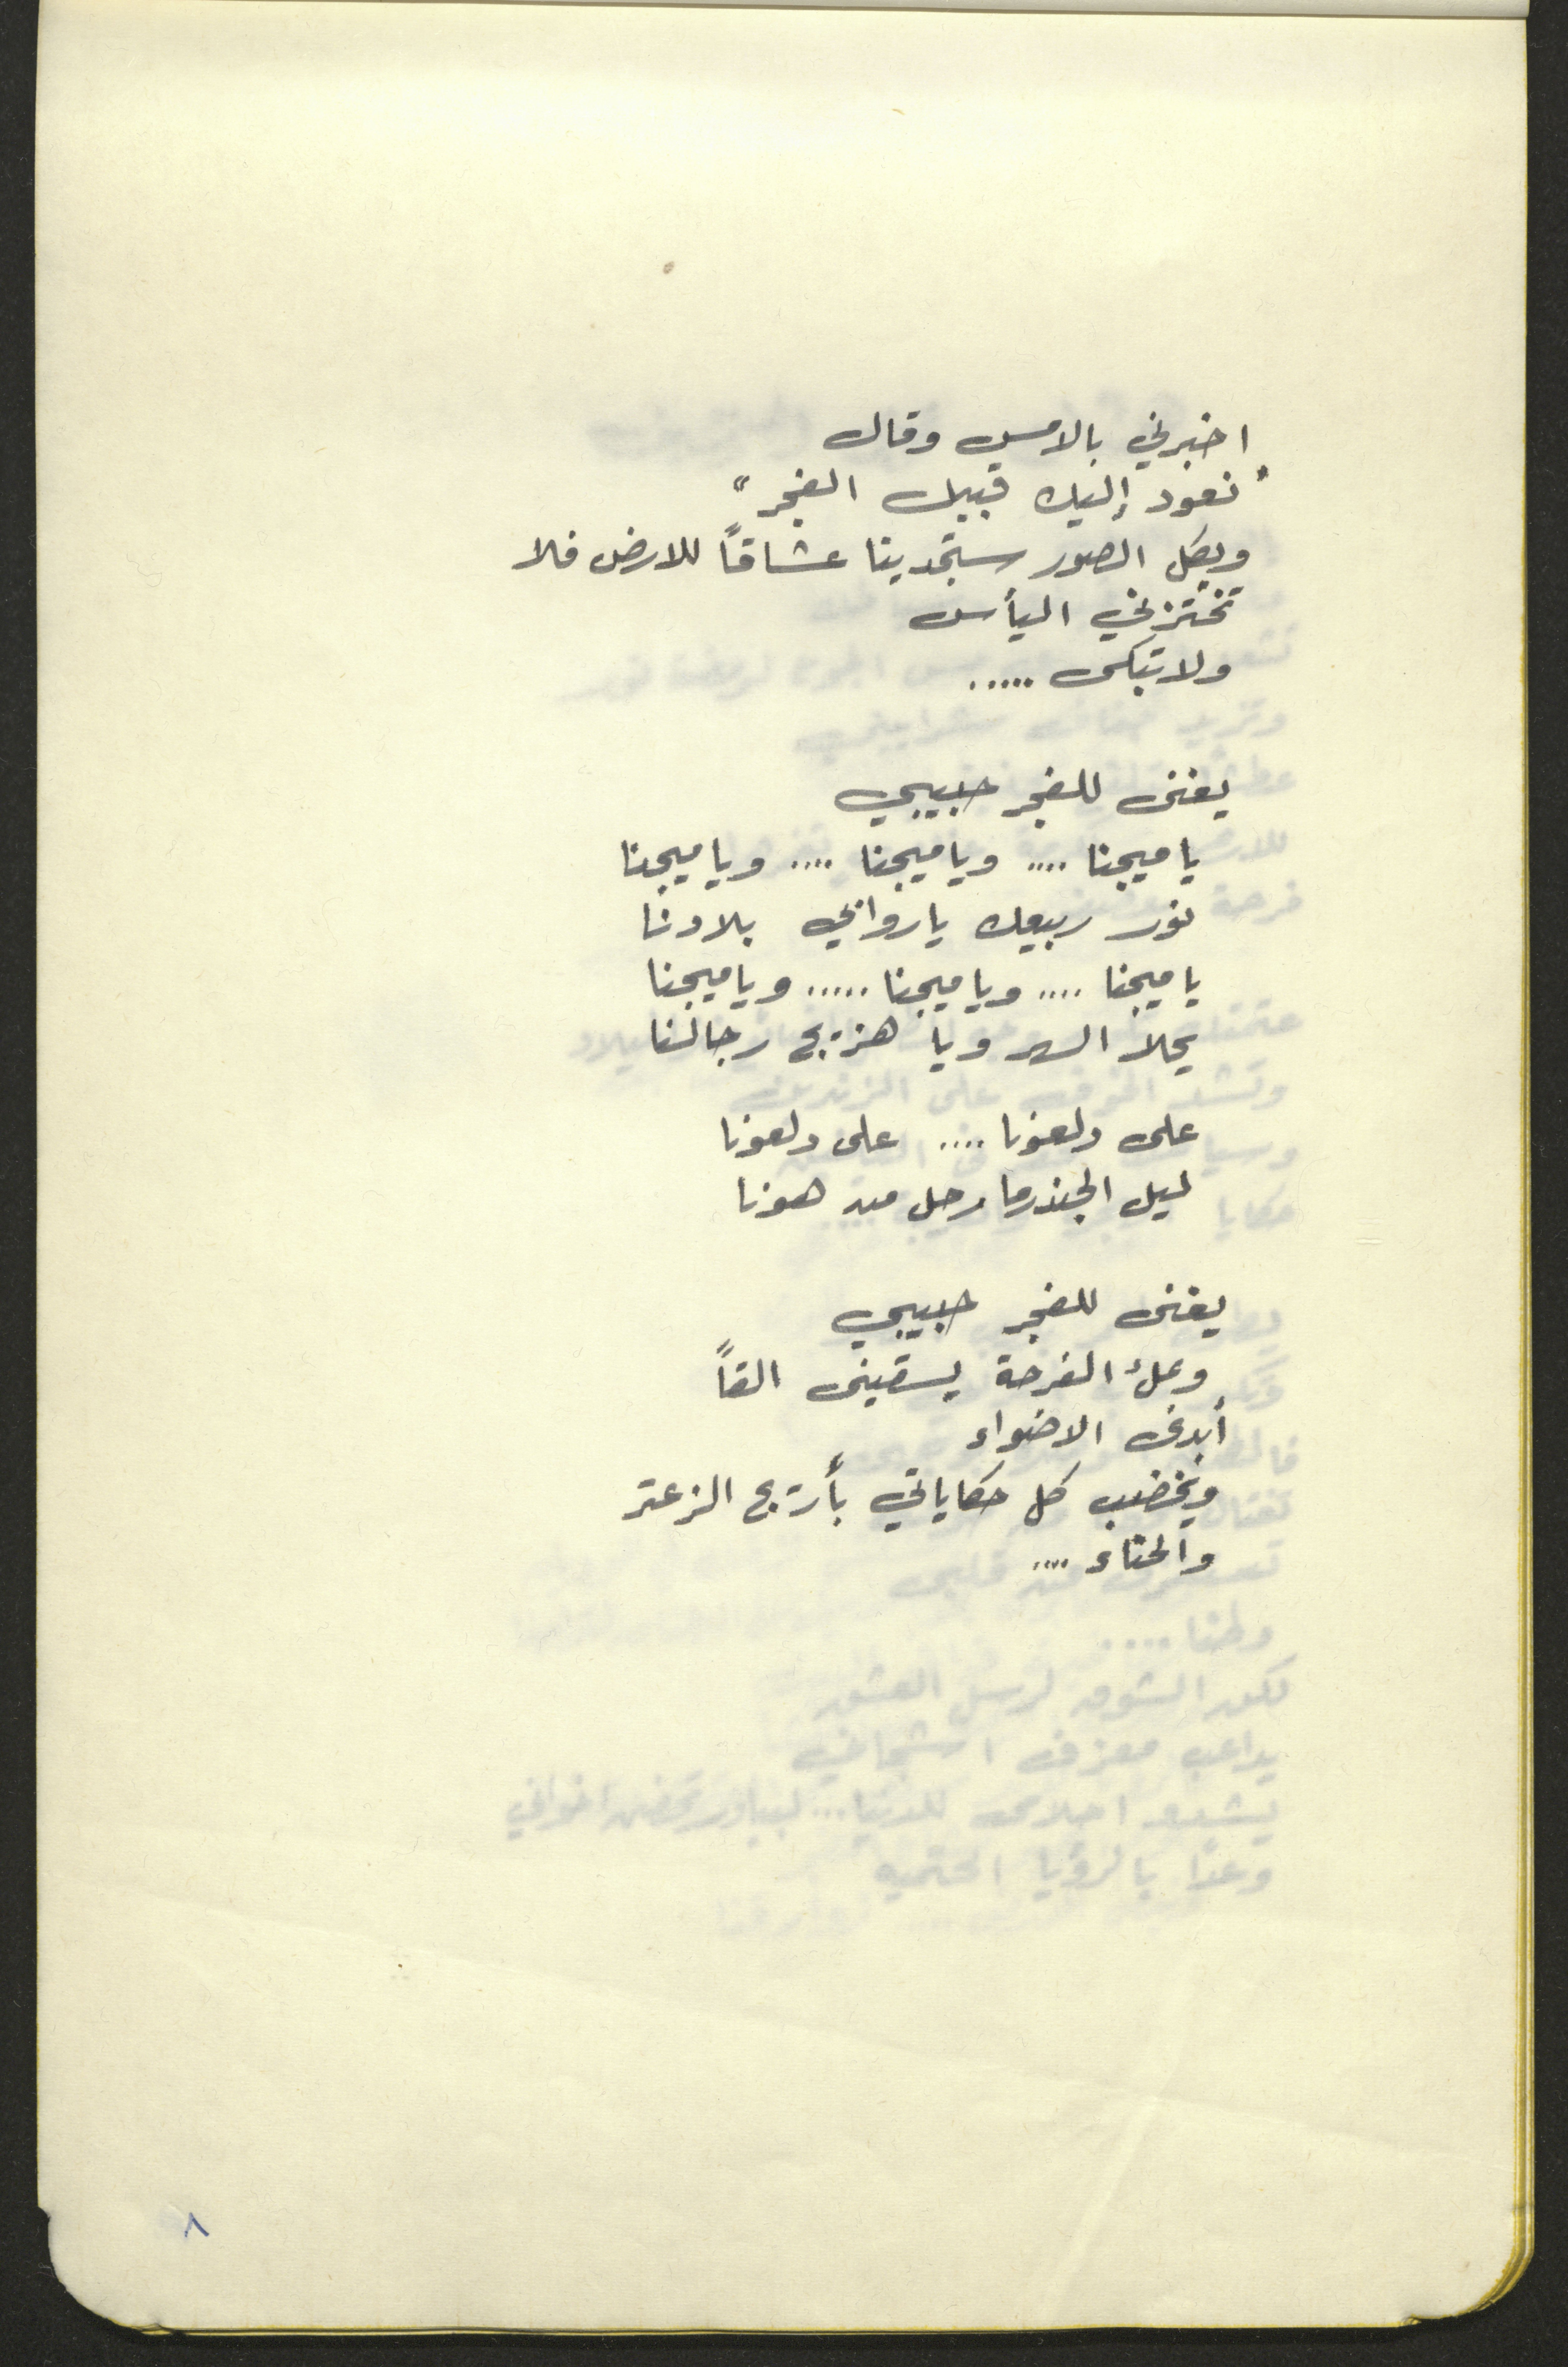 اخبرني بالامس وقال
"نعود إليك قبيل الفجر"
وبكل الصور ستجدينا عشاقاً للارض فلا
تختزني اليأس
ولا تبكى .....
يغنى للفجر حبيبي
يا ميجنا .... ويا ميجنا .... ويا ميجنا
نور ربيعك يا روابي بلادنا
يا ميجنا .... ويا ميجنا ..... ويا ميجنا
يحلا السهر ويا هزيج رجالنا
على دلعونا .... على دلعونا
ليل الجندرما رحل من هونا
يغنى للفجر حبيبي
وبملء الفرحة يسقينى القاً
أبدى الاضواء
ويخضب كل حكاياتي بأريج الزعتر
والحناء ....
٨